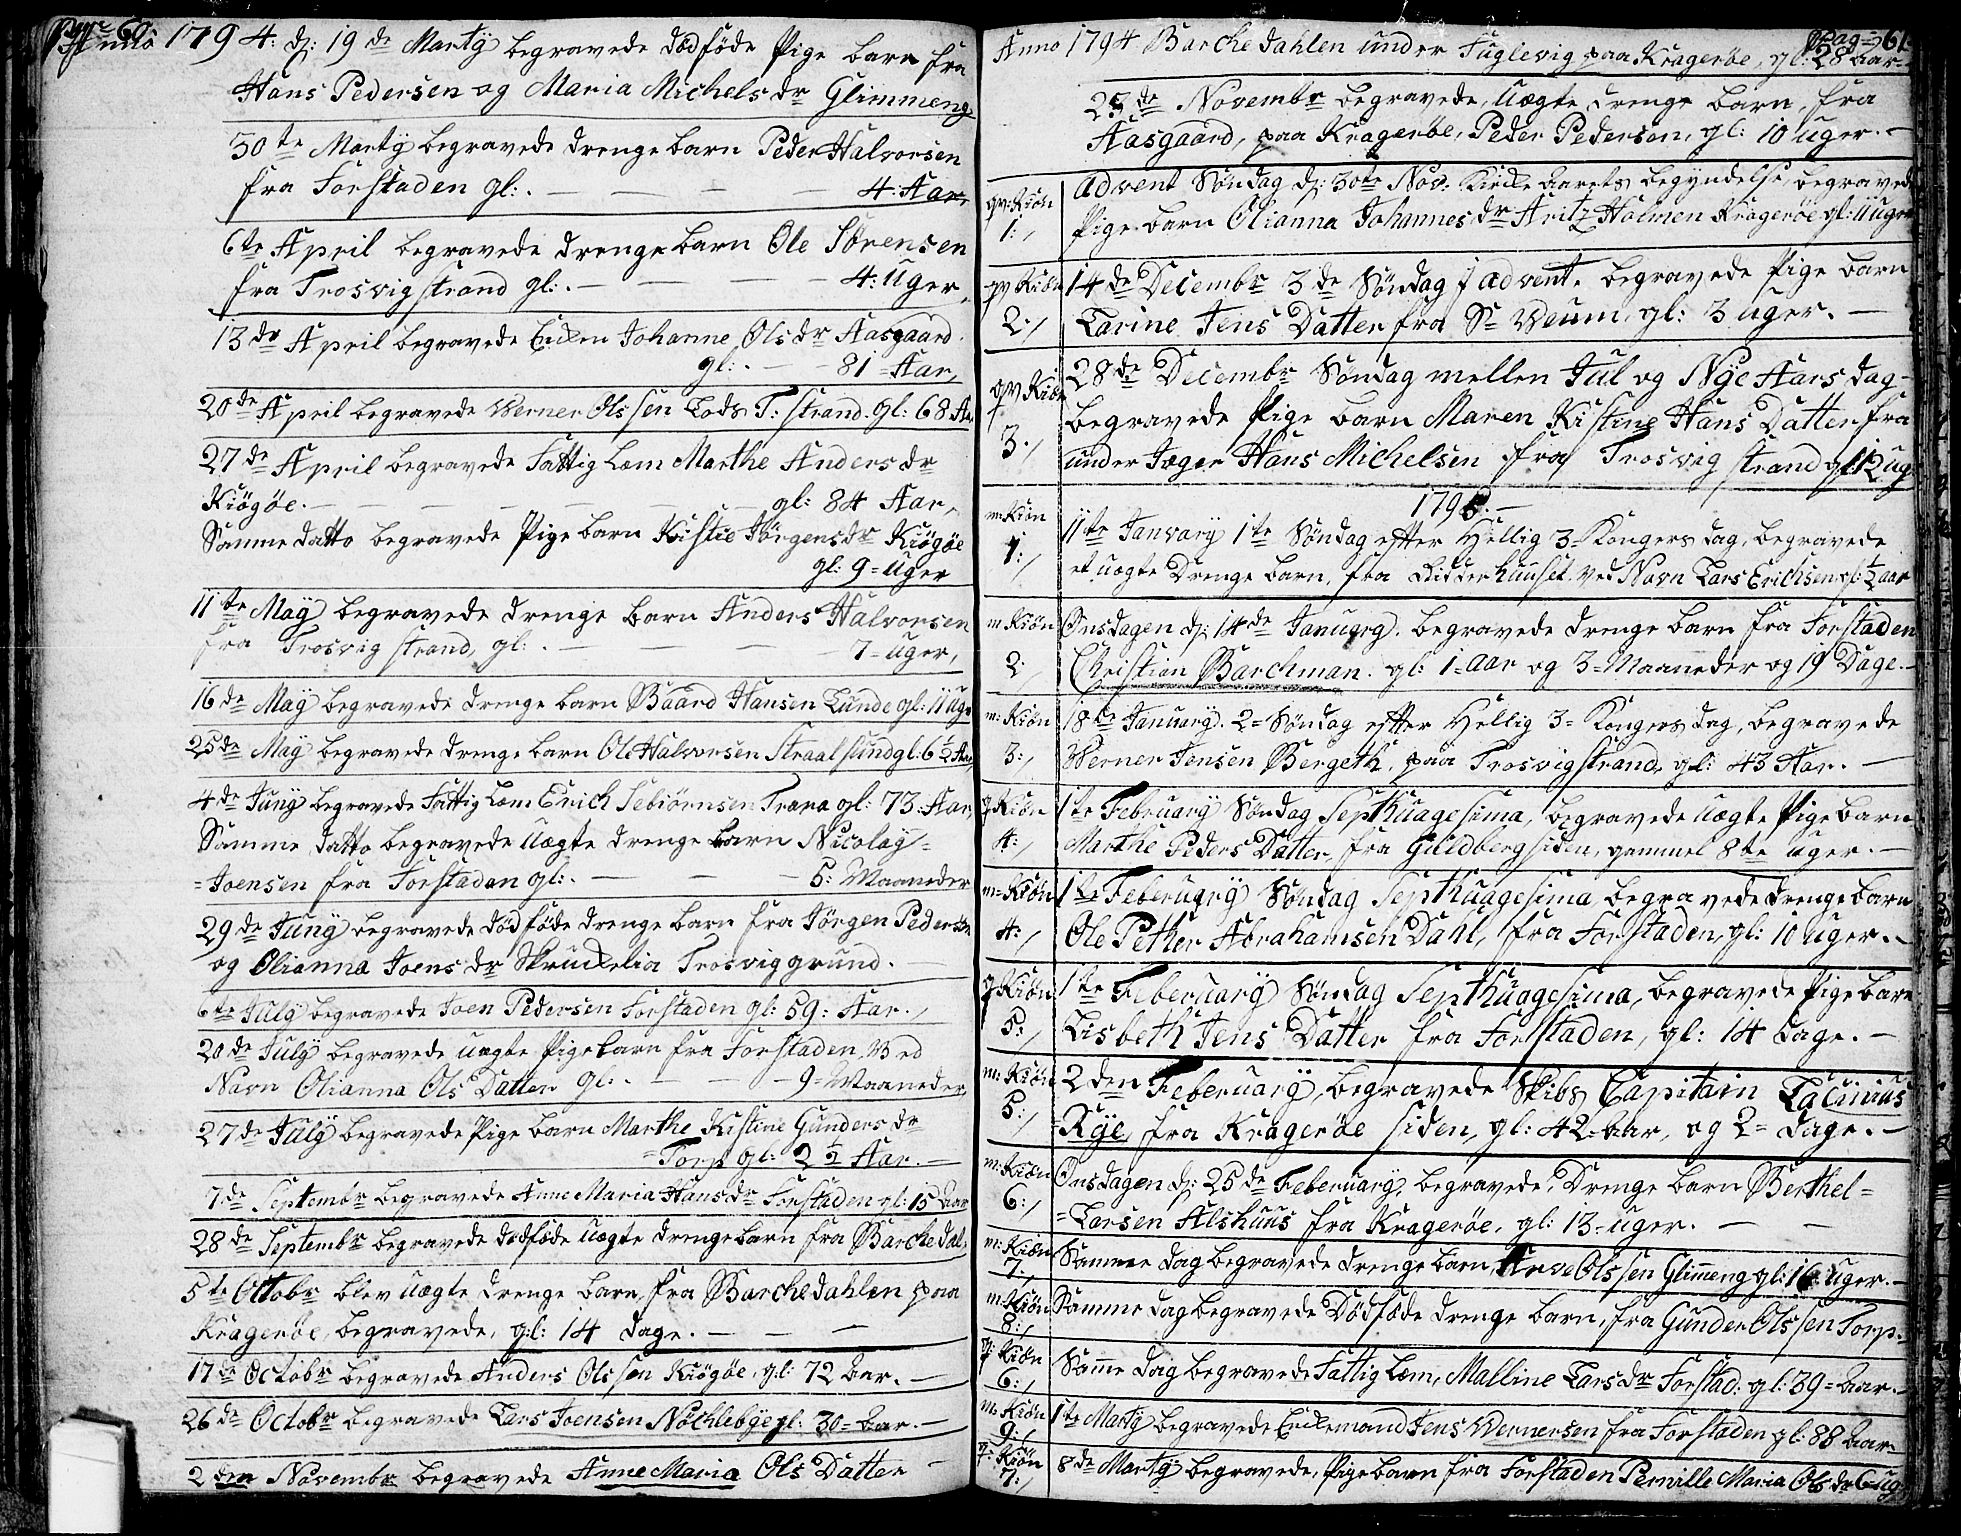 Pag: 60
Anno 1794. d: 19de Martÿ begravede dødføde Pige barn fra
Hans Pedersen og Maria Michels dr Glimmeng
30te Martÿ begravede drenge barn Peder Halvorsen
fra Forstaden gl: . — — — 4: Aar,
6te April begravede drenge barn Ole Sørensen
fra Trosvig strand gl: . — — — 4: Uger,
13de April begravede Enken Johanne Ols dr Aasgaard
gl: . — 81 = Aar,
20de April begravede Werner Olssen Lods T: strand. gl: 68 Aar
27de April begravede Fattig Lem Marthe Anders dr
Kiøgøe. — — — gl: 84 Aar,
Samme datto begravede Pige barn Kistie Jørgens dr Kiøgøe
gl: 9 = Uger
11te Maÿ begravede drenge barn Anders Halvorsen
fra Trosvig strand, gl: . — — — 7 = uger,
16de Maÿ begravede drenge barn Baard Hansen Lunde gl: 11 Ug:
25de Maÿ begravede drenge barn Ole Halvorsen Straalsund gl: 6 ½ Aar,
4de Junÿ begravede Fattig Lem Erich Sebiørnsen Træra gl: 73: Aar,
Samme datto begravede uægte drenge barn Nicolaÿ =
= Joensen fra Forstaden gl: . — — — 5: Maaneder
29de Junÿ begravede død føde drenge barn fra Jørgen Pedersen
og Olianna Joens dr Skruckelia Trosvig grund. —
6te Julÿ begravede Joen Pedersen Forstaden gl: 59: Aar.,
20de Julÿ begravede uægte Pige barn fra Forstaden Wed
Navn Olianna Ols Datter gl: . — — — 9 = Maaneder,
27de Julÿ begravede Pige barn Marthe Kistine Gunders dr
= Torp gl: 2 ½ Aar. —
7de Septembr begravede Anne Maria Hans dr Forstaden gl: 15 Aar
28de Septembr begravede dødføde uægte drenge barn fra Barchedal:
5te Octobr blev uægte drenge barn, fra Barchedahlen paa
Kragerøe, begravede, gl: 14 dage. — — —
17de Octobr begravede Anders Olssen Kiøgøe, gl: 72 Aar. —
26de Octobr begravede Lars Joensen Nøchlebÿe gl: 30 = Aar. —
2den Novembr begravede Anne Maria Ols Datter —
Pag = 61
Anno 1794 Barchedahlen under Fuglevig paa Kragerøe, gl: 28 Aar —
23de Novembr begravede, Uægte drenge barn, fra
Aasgaard, paa Kragerøe, Peder Pedersen, gl: 10 Uger. —
qv: Kiøn
1:,
Advent Søndag d: 30te Nov: Kircke Aarets begÿndelse, begravede
Pige barn Olianna Johannes dr Aritz Holmen Kragerøe gl: 11 uger
qv Kiøn
2:,
14de Decembr 3de Søndag i advent. begravede Pige barn
Carine Jens Datter fra Sr Weum, gl: 3 uger. —
qv Kiøn
3:,
28de Decembr Søndag mellem Jul og Nÿe Aars dag —
begravede Pige barn Maren Kistine Hans Datter fra
under Jæger Hans Michelsen fra Trosvig strand gl: 12 ug
1795. —
m Kiøn
1:,
11te Januarÿ 1te Søndag efter Hellig 3 = Konger dag, begravede
et uægte drenge barn, fra Ridderhuuset. ved Navn Lars Erichsen gl: ½ aar
m Kiøn
2:,
Onsdagen d: 14de Januarÿ. begravede drenge barn fra Forstaden
Christian Barchman. gl: 1 = aar og 3 = Maaneder og 19 Dage. —
m: Kiøn
3:,
18de Januarÿ. 2 = Søndag efter Hellig 3 = Konger dag, begravede
Werner Jensen Bergeth, paa Trosvigstrand, gl: 43 Aar. —
q Kiøn
4:,
1te Februarÿ Søndag Septhuagesima, begravede uægte Pige barn
Marthe Peders Datter, fra Guldbergsiden, gammel 8te uger. —
m = Kiøn
4:,
1te Feberuarÿ Søndag Septhuagesima begravede drenge barn
Ole Pether Abrahamsen Dahl, fra Forstaden, gl: 10 uger. —
q Kiøn
5:,
1te Feberuarÿ Søndag Septhuagesima, begravede Pige barn
Lisbeth Jens Datter fra Forstaden, gl: 14 dage. —
m: Kiøn
5:,
2den Feberuarÿ, begravede Skibs Capitain Lacinius
= Rÿe, fra Kragerøe siden, gl: 42 = Aar, og 2 = dage. —
m: Kiøn
6:,
Onsdagen d: 25de Feberuarÿ, begravede, Drenge barn Berthel =
= Larsen Alshuus fra Kragerøe, gl: 13 = uger. — —
m: Kiøn
7:,
Samme dag begravede drenge barn, Arve Olssen Glimeng gl: 16: Uger. —
m: Kiøn
8:,
Samme dag begravede Dødføde drenge barn, fra Gunder Olssen Torp. —
q: Kiøn
6:,
Same dag begravede Fattig Lem, Malline Lars dr Forstad: gl: 39 = Aar. —
m Kiøn
9:,
1te Martÿ begravede Enckemand Jens Wernersen fra Forstaden gl: 88 Aar —
q: Kiøn
7:,
8de Martÿ begravede, Pige barn fra Forstaden Pernille Maria Ols dr 6 = ug: